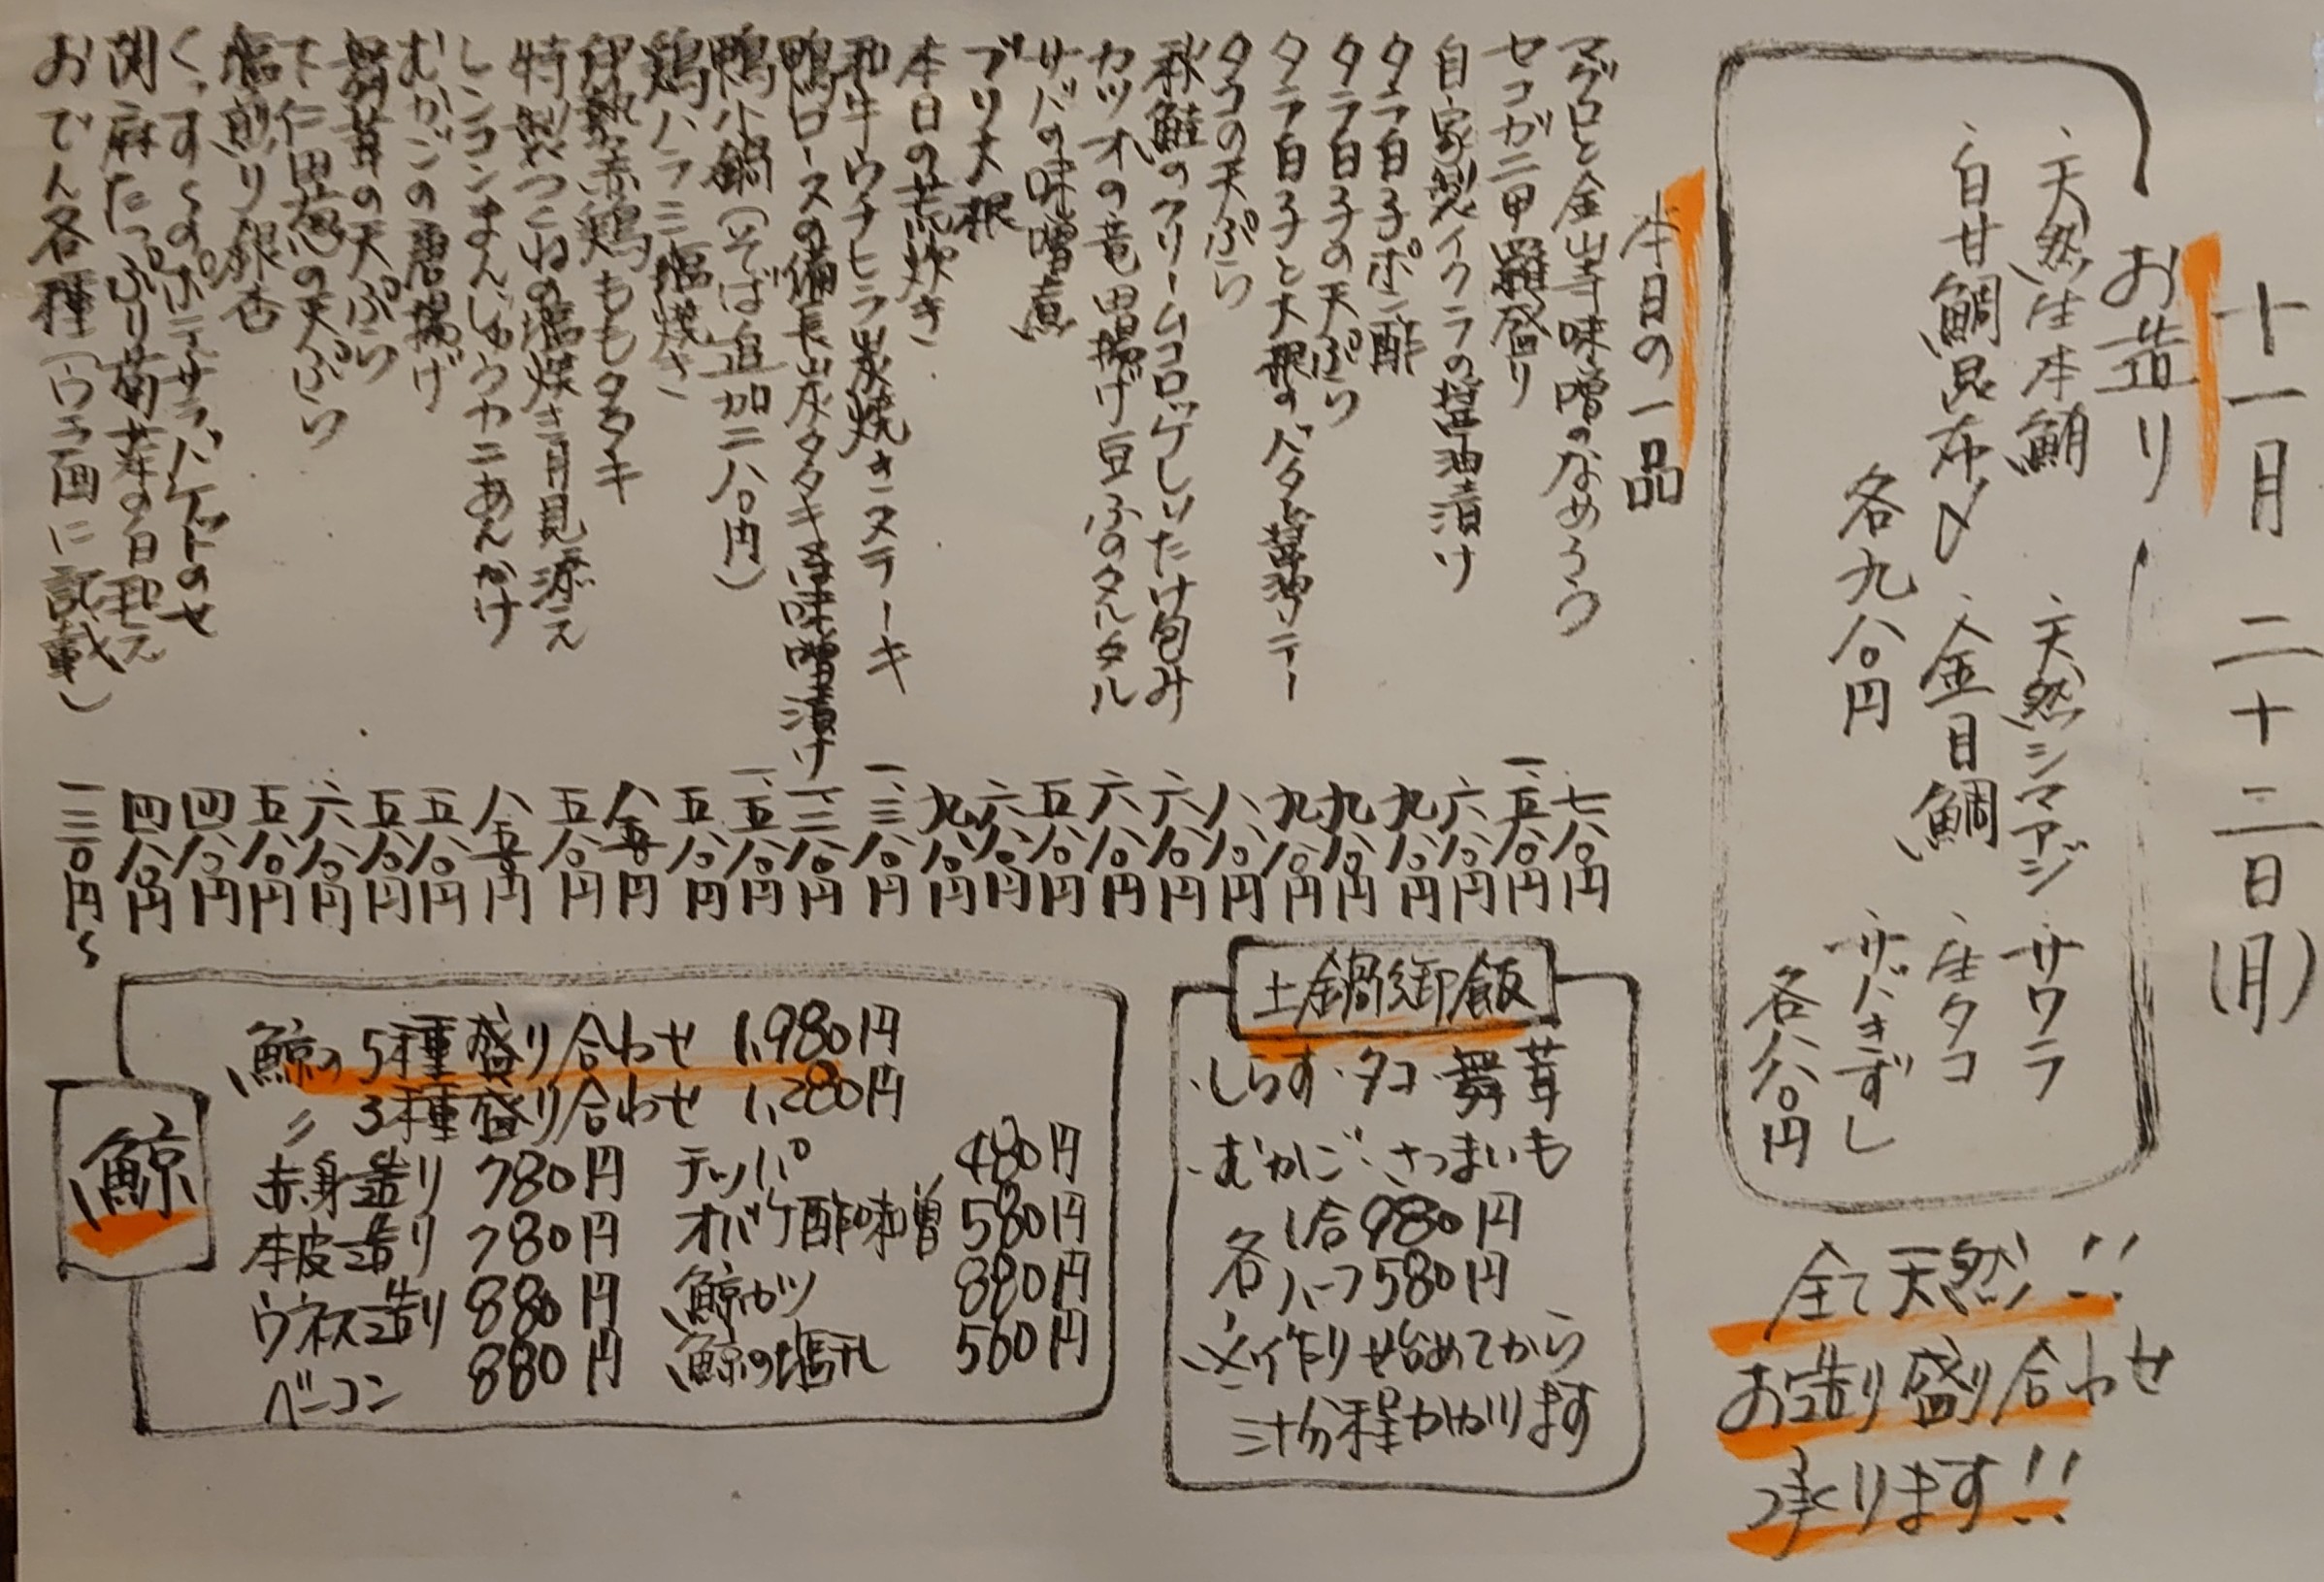 十一月二十二日(月)
お造り
天然生本鮪
天然シマアジ
サワラ
白甘鯛昆布〆
金目鯛
生タコ
各九八〇円
サバきずし
各八八〇円
全て天然!!
お造り盛り合わせ
承ります!!
本日の一品
マグロと金山寺味噌のなめろう 七八〇円
セコガニ甲羅盛り 一、五八〇円
自家製イクラの醤油漬け 六八〇円
タラ白子ポン酢 九八〇円
タラ白子の天ぷら 九八〇円
タラ白子と大根のバター醤油ソテー 九八〇円
タコの天ぷら 八八〇円
秋鮭のクリームコロッケしいたけ包み 六八〇円
カツオの竜田揚げ豆ふのタルタル 六八〇円
サバの味噌煮 五八〇円
ブリ大根 六八〇円
本日の荒炊き 九八〇円
和牛ウチヒラ炭焼きステーキ 一、三八〇円
鴨ロースの備長炭タタキ 味噌漬け 一、二八〇円
鴨小鍋(そば追加二八〇円) 一、五八〇円
鶏ハラミ塩焼き 五八〇円
赤鶏ももタタキ 八五〇円
特製つくねの塩焼き月見添え 五八〇円
レンコンまんじゅうカニあんかけ 八五〇円
むかごの唐揚げ 五八〇円
舞茸の天ぷら 五八〇円
下仁田葱の天ぷら 六八〇円
塩煎り銀杏 五八〇円
くっすんのポテサラバケットのせ 四八〇円
胡麻たっぷり菊菜の白和え 四八〇円
おでん各種(ウラ面に記載) 一三〇円〜
土鍋御飯
・しらす・タコ・舞茸
・むかご・さつまいも
各1合980円
各ハーフ580円
※作り始めてから
三十分程かかります
鯨
鯨の5種盛り合わせ 1,980円
〃 3種盛り合わせ 1,280円
赤身造り 780円 テッパ 480円
本皮造り 780円 オバケ酢味噌 580円
ウネス造り 880円 鯨カツ 880円
ベーコン 880円 鯨の塩 500円